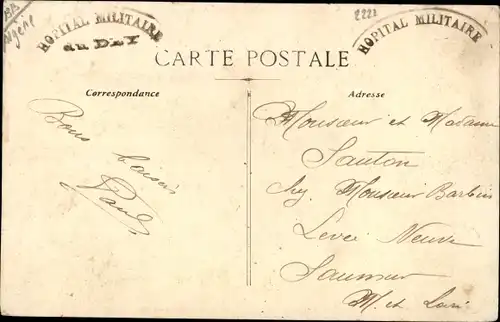 Algérie
HOPITAL MILITAIRE
du DEY
2221
HOPITAL MILITAIRE
CARTE POSTALE
Correspondance
Bons
baisers
Paul
Adresse
Monsieur et Madame
Sauton
chez Monsieur Barbin
Levée Neuve
Saumur
M. et Loire